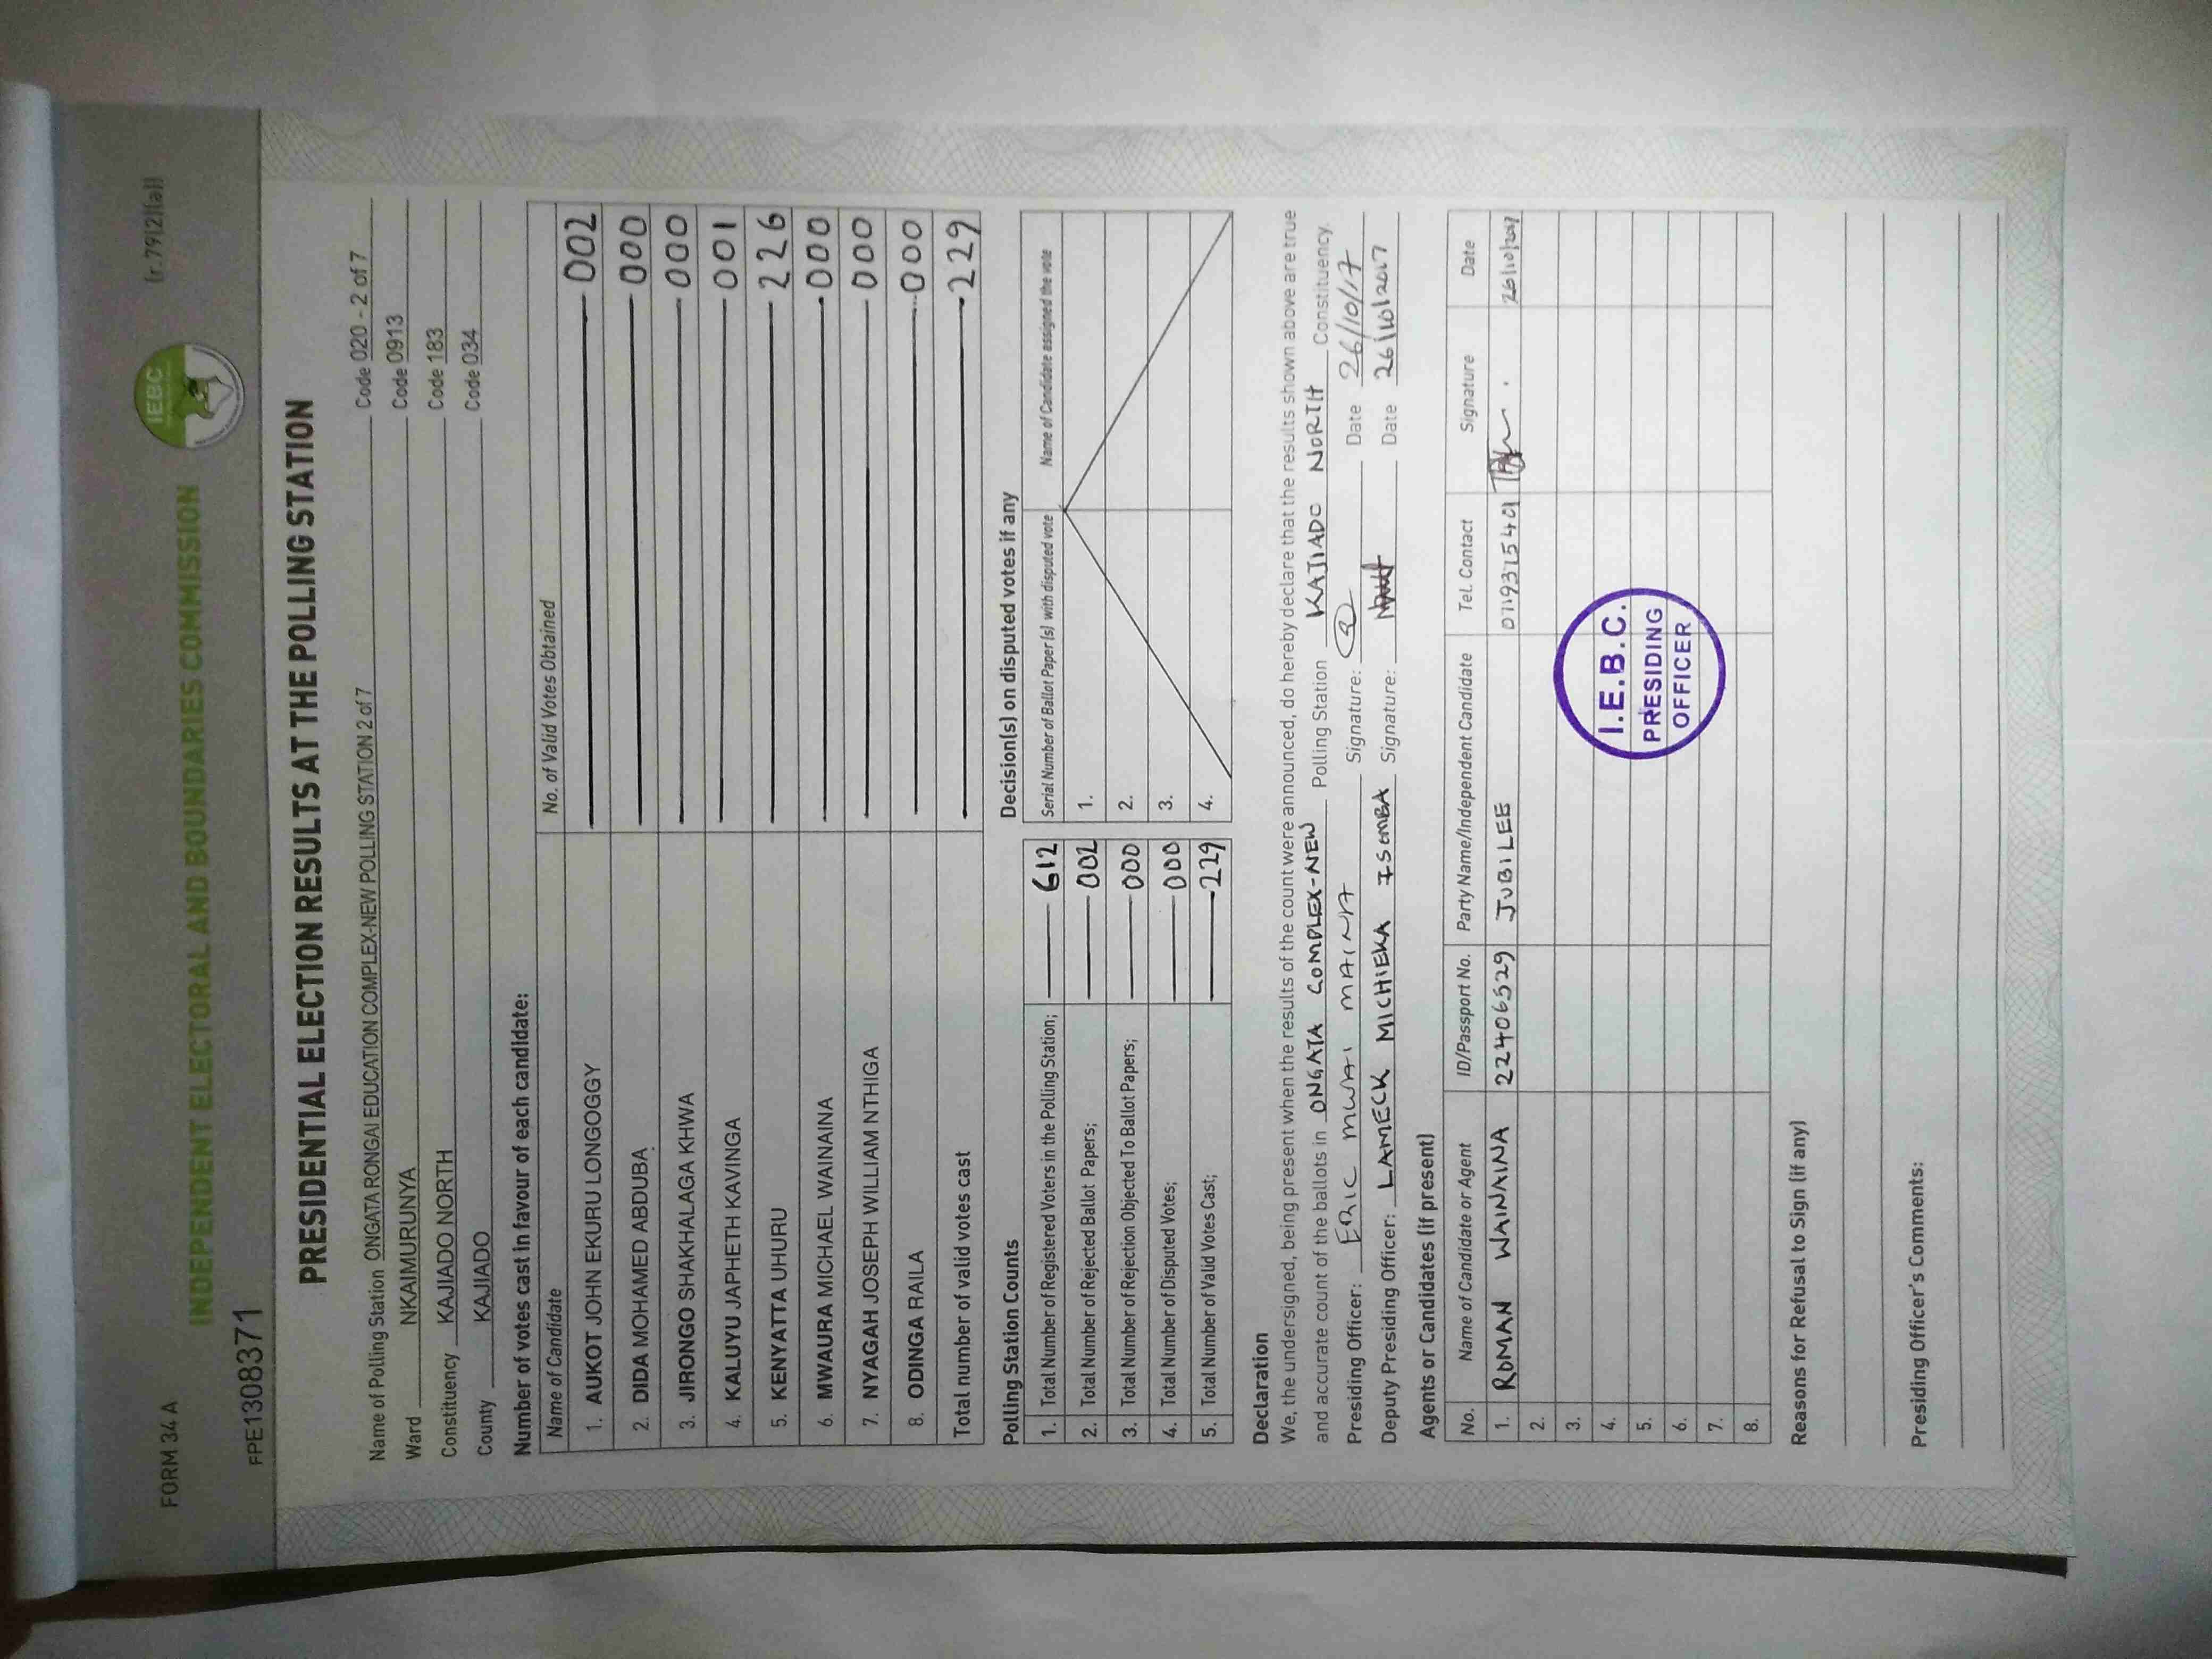 FORM 34 A
(r.79(2)(a))
IEBC
INDEPENDENT ELECTORAL AND BOUNDARIES COMMISSION
FPE1308371
PRESIDENTIAL ELECTION RESULTS AT THE POLLING STATION
Name of Polling Station ONGATA RONGAI EDUCATION COMPLEX-NEW POLLING STATION 2 of 7 Code 020 - 2 of 7
Ward NKAIMURUNYA Code 0913
Constituency KAJIADO NORTH Code 183
County KAJIADO Code 034
Number of votes cast in favour of each candidate:
Name of Candidate No. of Valid Votes Obtained
1. AUKOT JOHN EKURU LONGOGGY 002
2. DIDA MOHAMED ABDUBA 000
3. JIRONGO SHAKHALAGA KHWA 000
4. KALUYU JAPHETH KAVINGA 001
5. KENYATTA UHURU 226
6. MWAURA MICHAEL WAINAINA 000
7. NYAGAH JOSEPH WILLIAM NTHIGA 000
8. ODINGA RAILA 000
Total number of valid votes cast 229
Polling Station Counts
1. Total Number of Registered Voters in the Polling Station; 612
2. Total Number of Rejected Ballot Papers; 002
3. Total Number of Rejection Objected To Ballot Papers; 000
4. Total Number of Disputed Votes; 000
5. Total Number of Valid Votes Cast; 229
Decision(s) on disputed votes if any
Serial Number of Ballot Paper (s) with disputed vote Name of Candidate assigned the vote
1.
2.
3.
4.
Declaration
We, the undersigned, being present when the results of the count were announced, do hereby declare that the results shown above are true
and accurate count of the ballots in ONGATA COMPLEX-NEW Polling Station KAJIADO NORTH Constituency.
Presiding Officer: ERIC MWAI MAINA Signature: Date 26/10/17
Deputy Presiding Officer: LAMECK MICHIEKA ISEMBA Signature: Date 26/10/2017
Agents or Candidates (if present)
No. Name of Candidate or Agent ID/Passport No. Party Name/Independent Candidate Tel. Contact Signature Date
1. ROMAN WAINAINA 22406529 JUBILEE 26/10/2017
2.
3.
4.
5.
6.
7.
8.
I.E.B.C.
PRESIDING
OFFICER
Reasons for Refusal to Sign (if any)
Presiding Officer's Comments: